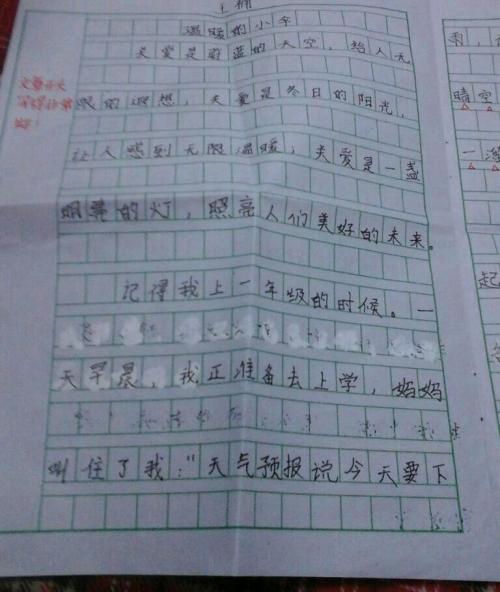 王楠
温暖的小伞
关爱是蔚蓝的天空,给人无
限的遐想,关爱是冬日的阳光,
让人感到无限温暖,关爱是一盏
明亮的灯,照亮人们美好的未来。
记得我上一年级的时候。一
天早晨,我正准备去上学,妈妈
叫住了我:“天气预报说今天要下
文章开大
好!
晴空
一
起